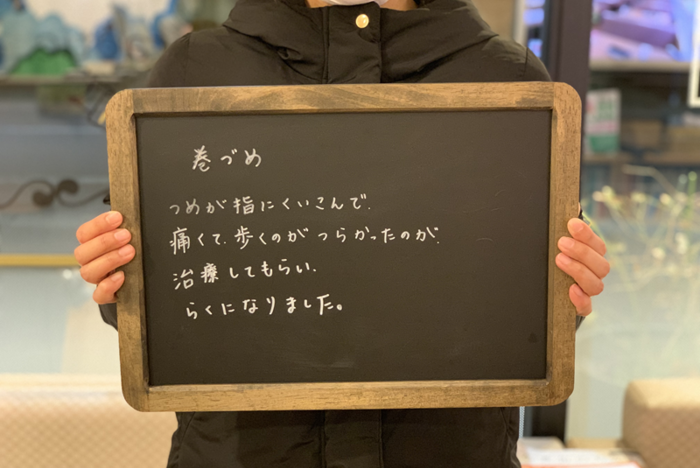 巻づめ
つめが指にくいこんで、
痛くて、歩くのがつらかったのが、
治療してもらい、
らくになりました。